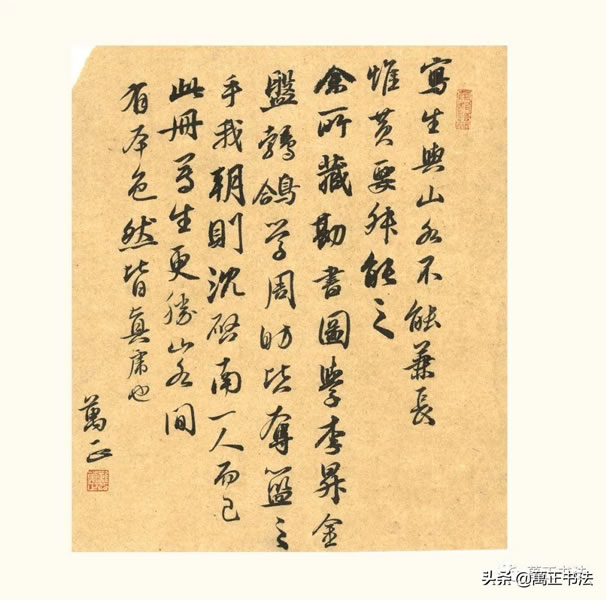 寫生與山水不能兼長
惟黃要叔能之
余所藏勘書圖學李昇金
盤鵓鴿学周昉皆奪藍之
手我朝則沈啓南一人而已
此冊寫生更勝山水間
有本色然皆真虎也
萬正
萬正书法
头条 @萬正书法